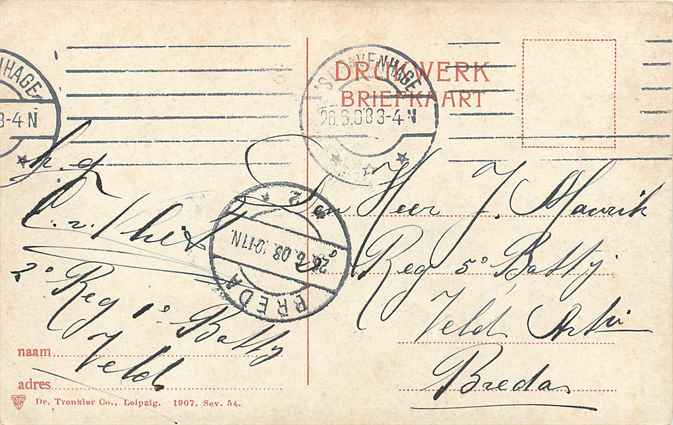 'S GRAVENHAGE
26.6.08 3-4 N
DRUKWERK
BRIEFKAART
NHAGE
8-4 N
h. g.
2e Reg 1e Batty
Veld
BREDA
26.6.08.10-11N.
2
Den Heer J. Maurik
Reg 5e Batty
Veld Art
Breda
naam
adres
Dr. Trenkler Co., Leipzig. 1907. Sev. 54.